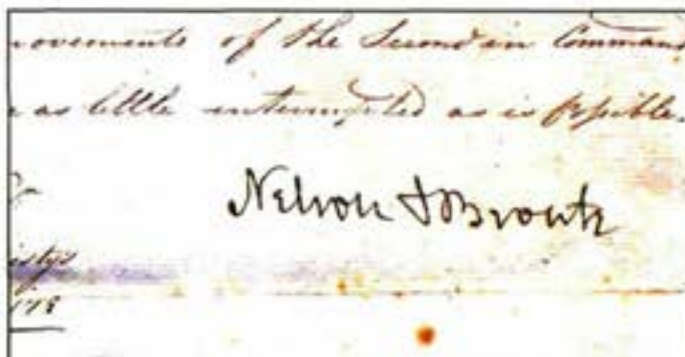 ovements of the Second in Command
e as little interrupted as is possible.
Nelson & Bronte